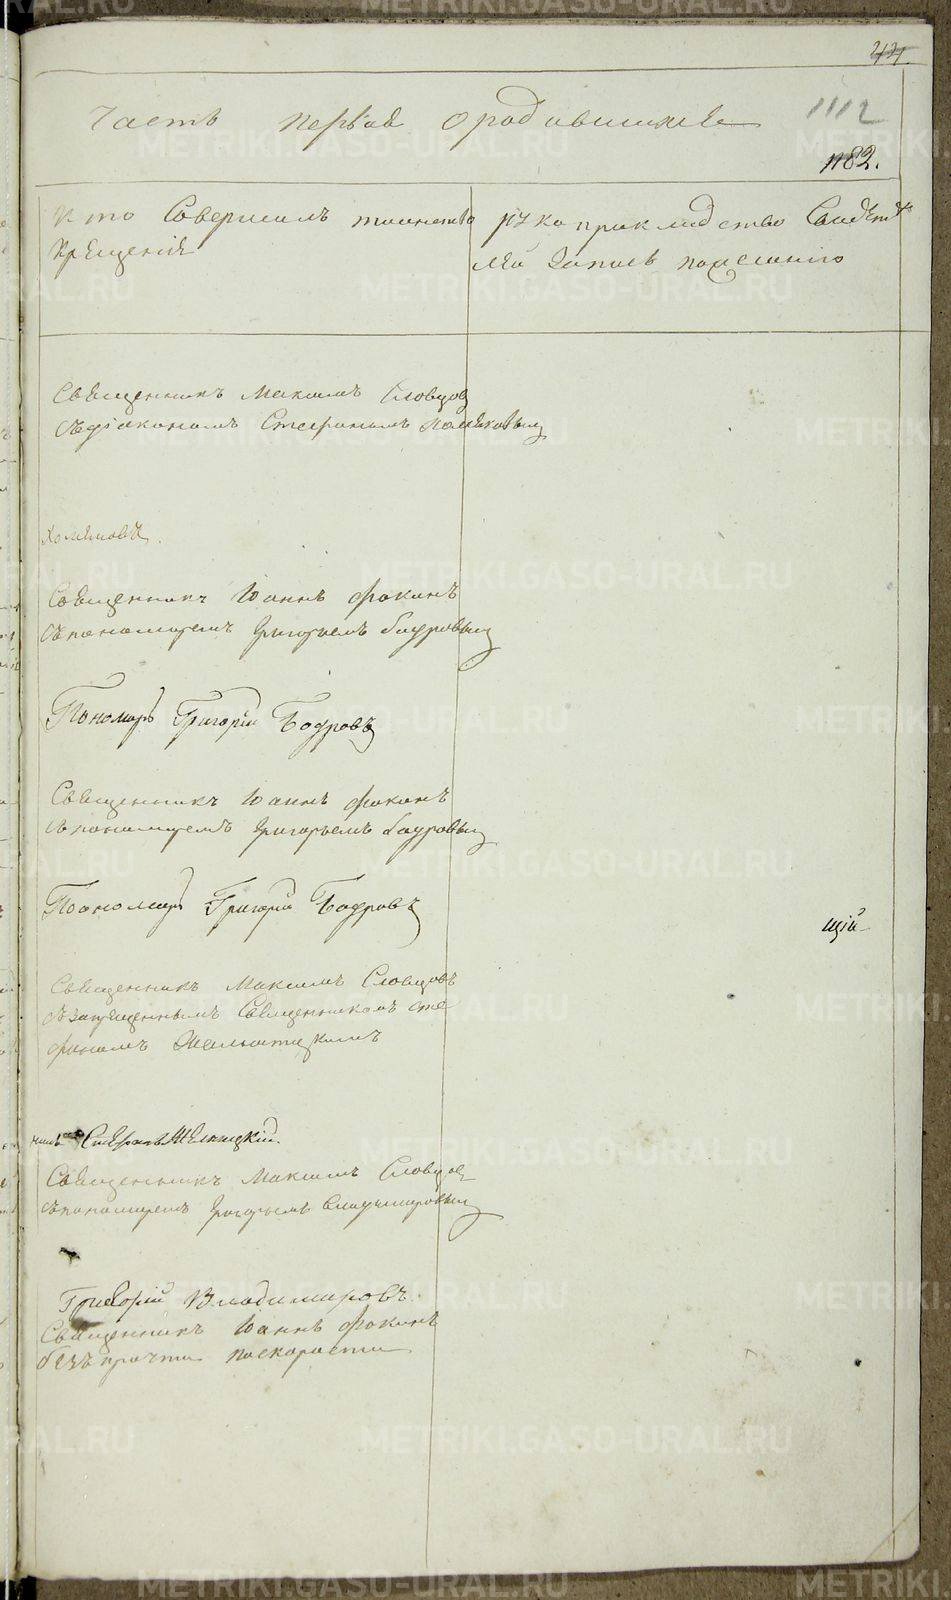 44.
Часть первая о родившихся
1112
1182.
Кто Совершилъ таинство
Крещенія
рукоприкладство Свидѣте
лей Записи пожеланію
Священникъ Максимъ Словцов
съ діакономъ Стефаномъ Поляковым
Хомяковъ.
Священникъ Іоаннъ Фокинъ
съ пономаремъ Григорьемъ Бодровым
Пономарь Григорій Бодровъ
Священникъ Іоаннъ Фокинъ
съ пономаремъ Григорьемъ Бодровым
Пономарь Григорій Бодровъ
щій
Священникъ Максимъ Словцовъ
съ запрещеннымъ Священникомъ Сте
фаномъ
Священникъ Максимъ Словцов
съ пономаремъ Григорьемъ Владимировым
Григорій Владимировъ.
Священникъ Іоаннъ Фокинъ
безъ причта по скорости
METRIKI.GASO-URAL.RU